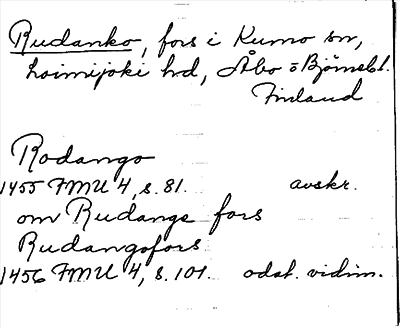 Rudanko, fors i Kumo sn,
Loimijoki hd, Åbo o Björnebl.
Finland
Rodango
1455 FMU 4, s. 81. avskr.
om Rudange fors
Rudangsfors
1456 FMU 4, s. 101. odat. vidim.